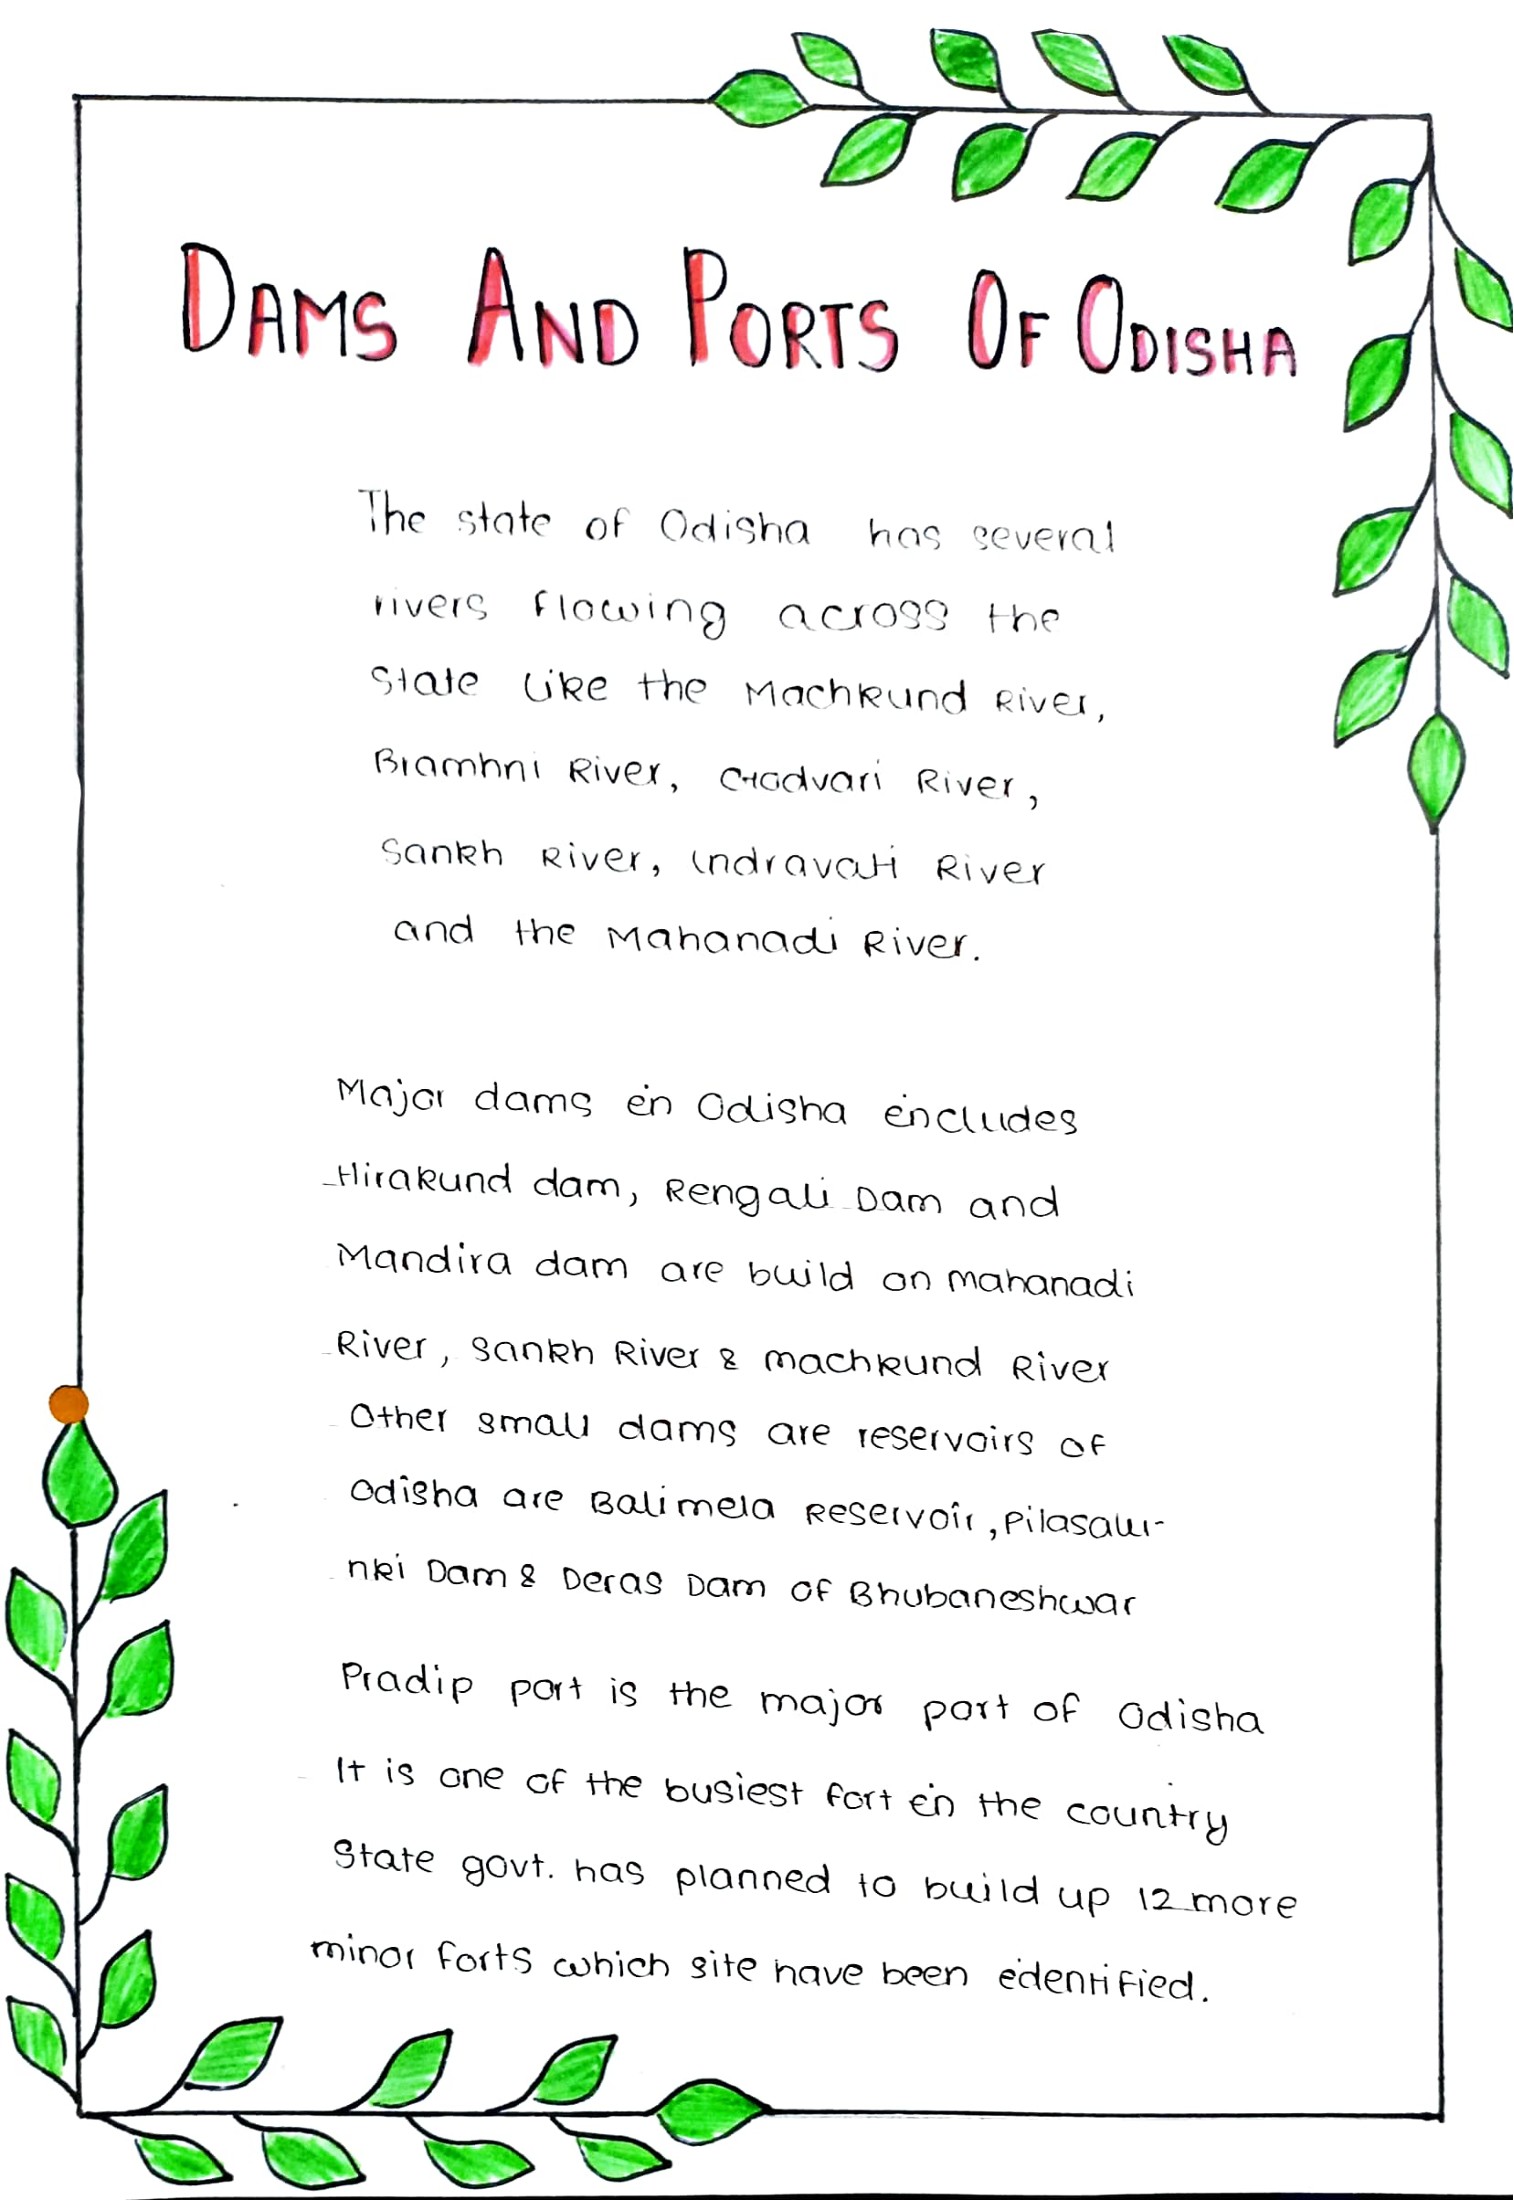 DAMS AND PORTS OF ODISHA
The state of Odisha has several
rivers flowing across the
State like the Machkund River,
Bramhni River, Godvari River,
Sankh River, Indravati River
and the Mahanadi River.
Major dams in Odisha includes
Hirakund dam, Rengali Dam and
Mandira dam are build on mahanadi
River, Sankh River & machkund River
Other small dams are reservoirs of
Odisha are Balimela Reservoir, Pilasalu-
nki Dam & Deras Dam of Bhubaneshwar
Pradip port is the major port of Odisha
It is one of the busiest fort in the country
State govt. has planned to build up 12 more
minor forts which site have been identified.